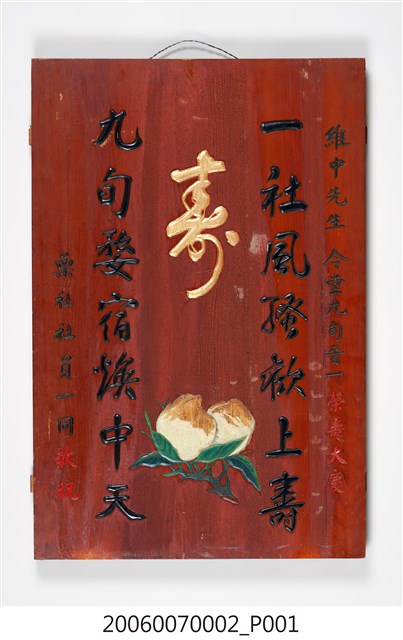 維中先生 令堂九旬晉一 榮壽大慶
一社風騷歡上壽
壽
九旬婺宿煥中天
栗社社員一同 敬祝
20060070002_P001